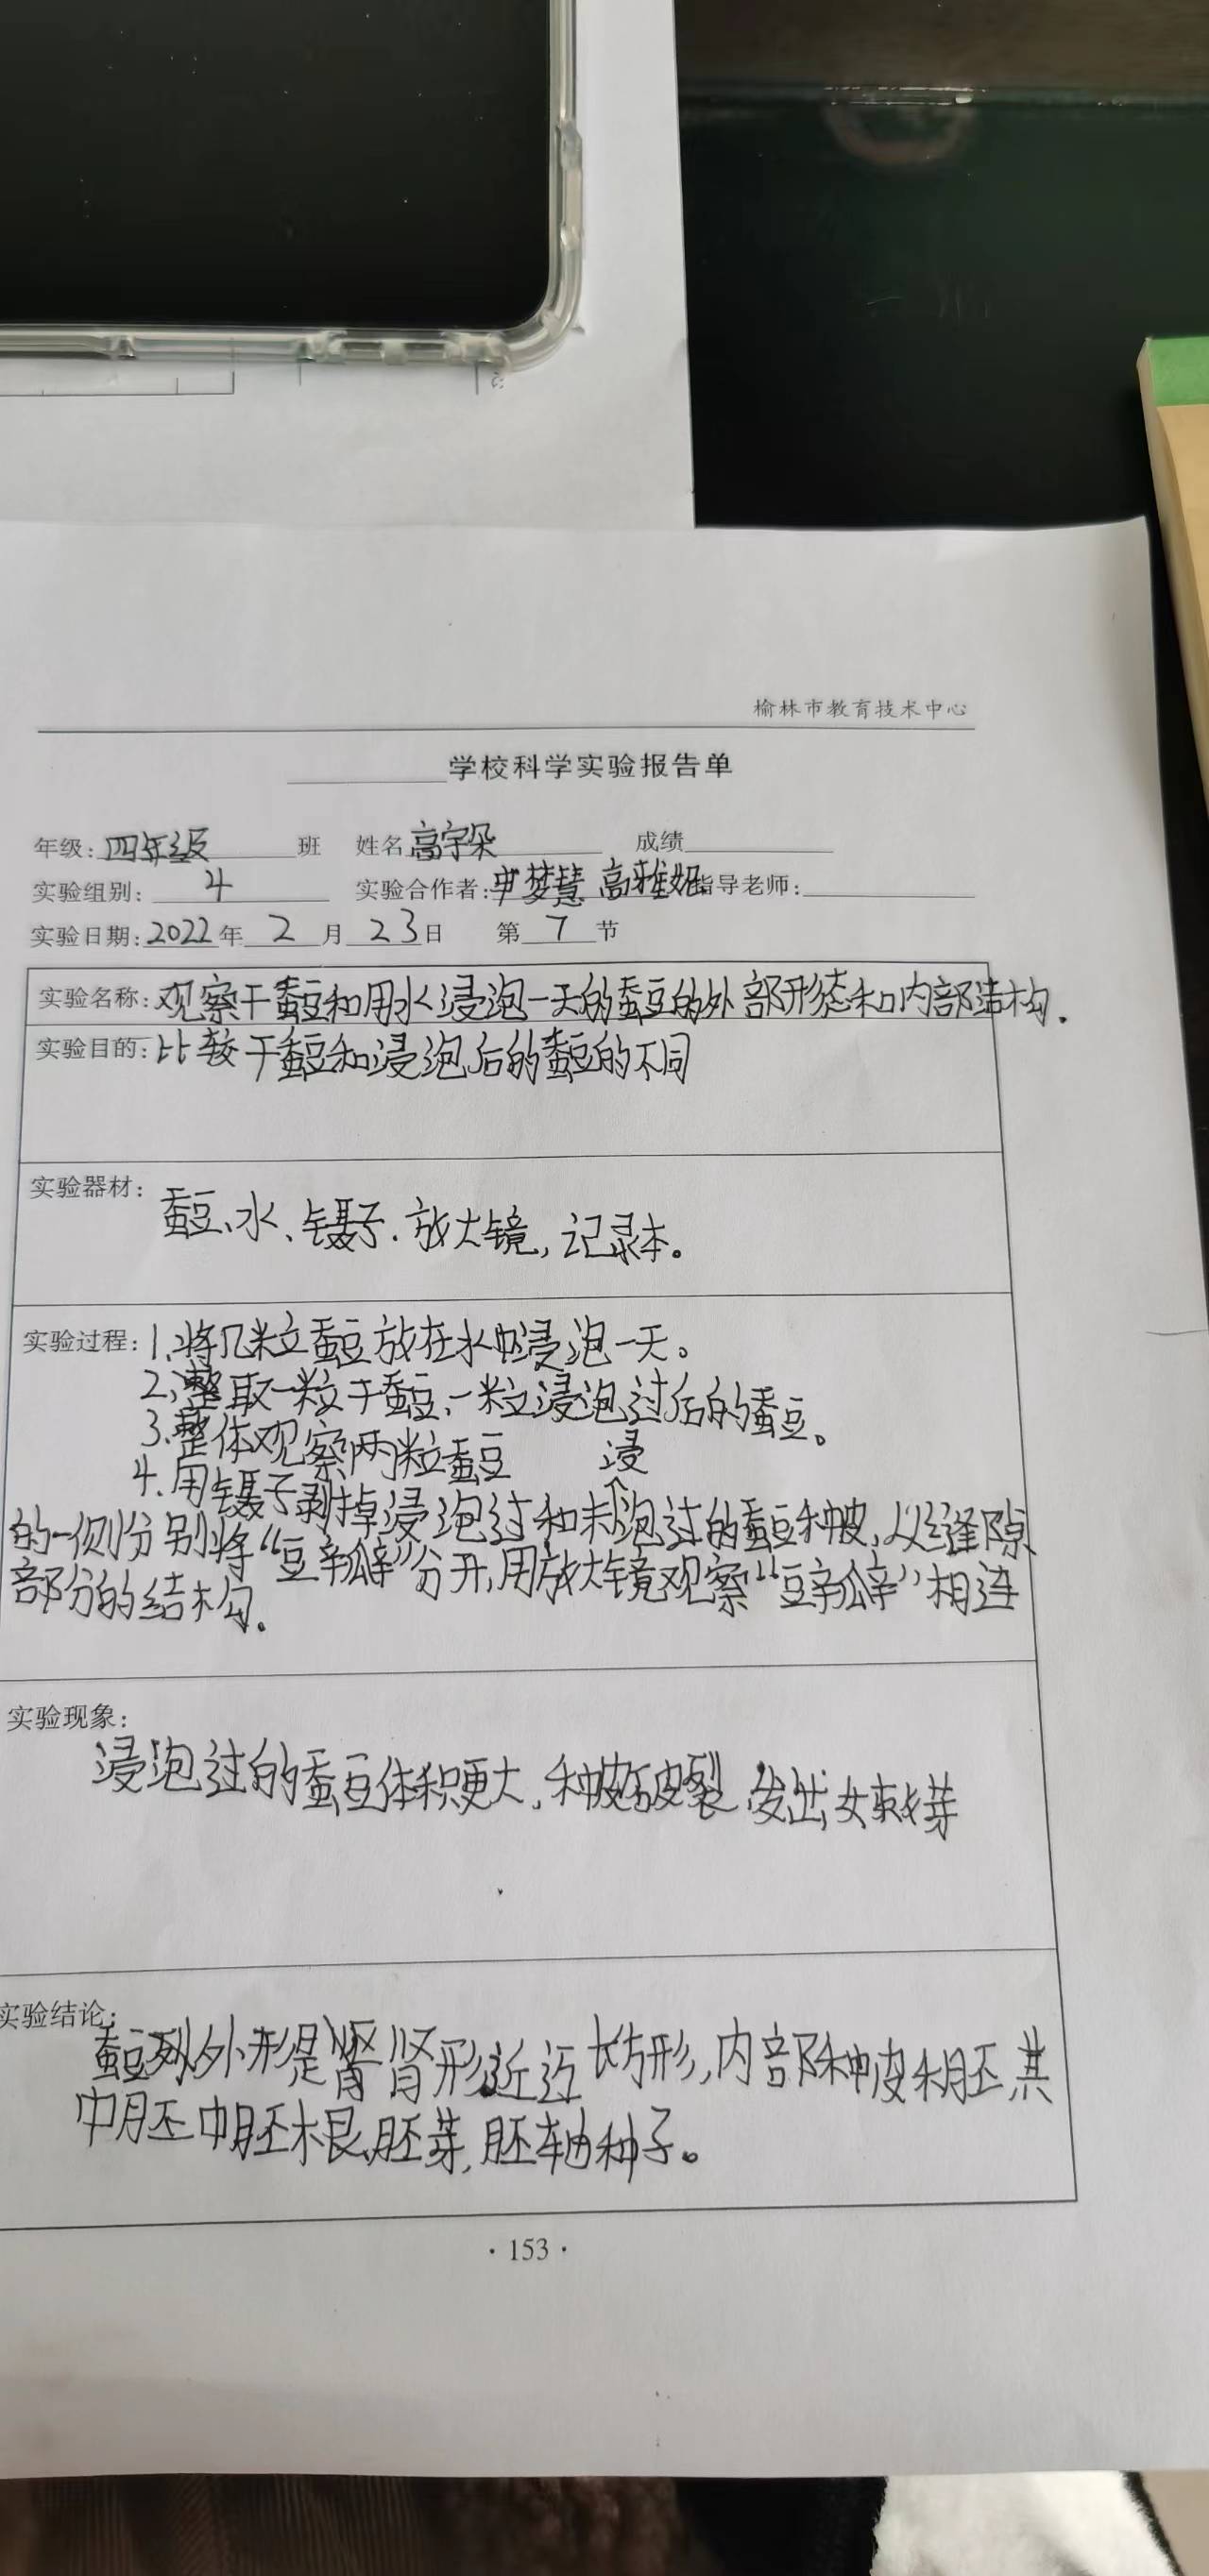 榆林市教育技术中心
学校科学实验报告单
年级:四年级 班 姓名 高宇朵 成绩
实验组别: 4 实验合作者: 梦慧 高雅妮 指导老师:
实验日期:2022年 2 月 23日 第 7 节
实验名称:观察干蚕豆和用水浸泡一天的蚕豆的外部形态和内部结构.
实验目的:比较干蚕豆和浸泡后的蚕豆的不同
实验器材:
蚕豆、水、镊子.放大镜,记录本。
实验过程:1.将几粒蚕豆放在水中浸泡一天。
2、取一粒干蚕豆、一粒浸泡过后的蚕豆。
3.整体观察两粒蚕豆
浸
4.用镊子剥掉浸泡过和未泡过的蚕豆种皮,从缝隙
的一侧分别将“豆瓣”分开,用放大镜观察“豆瓣”相连
部分的结构。
实验现象:
浸泡过的蚕豆体积更大,种皮破裂,发出嫩芽
实验结论:
蚕豆外形是肾形近迈长方形,内部种皮和胚,其
中胚中胚根,胚芽,胚轴种子。
·153·